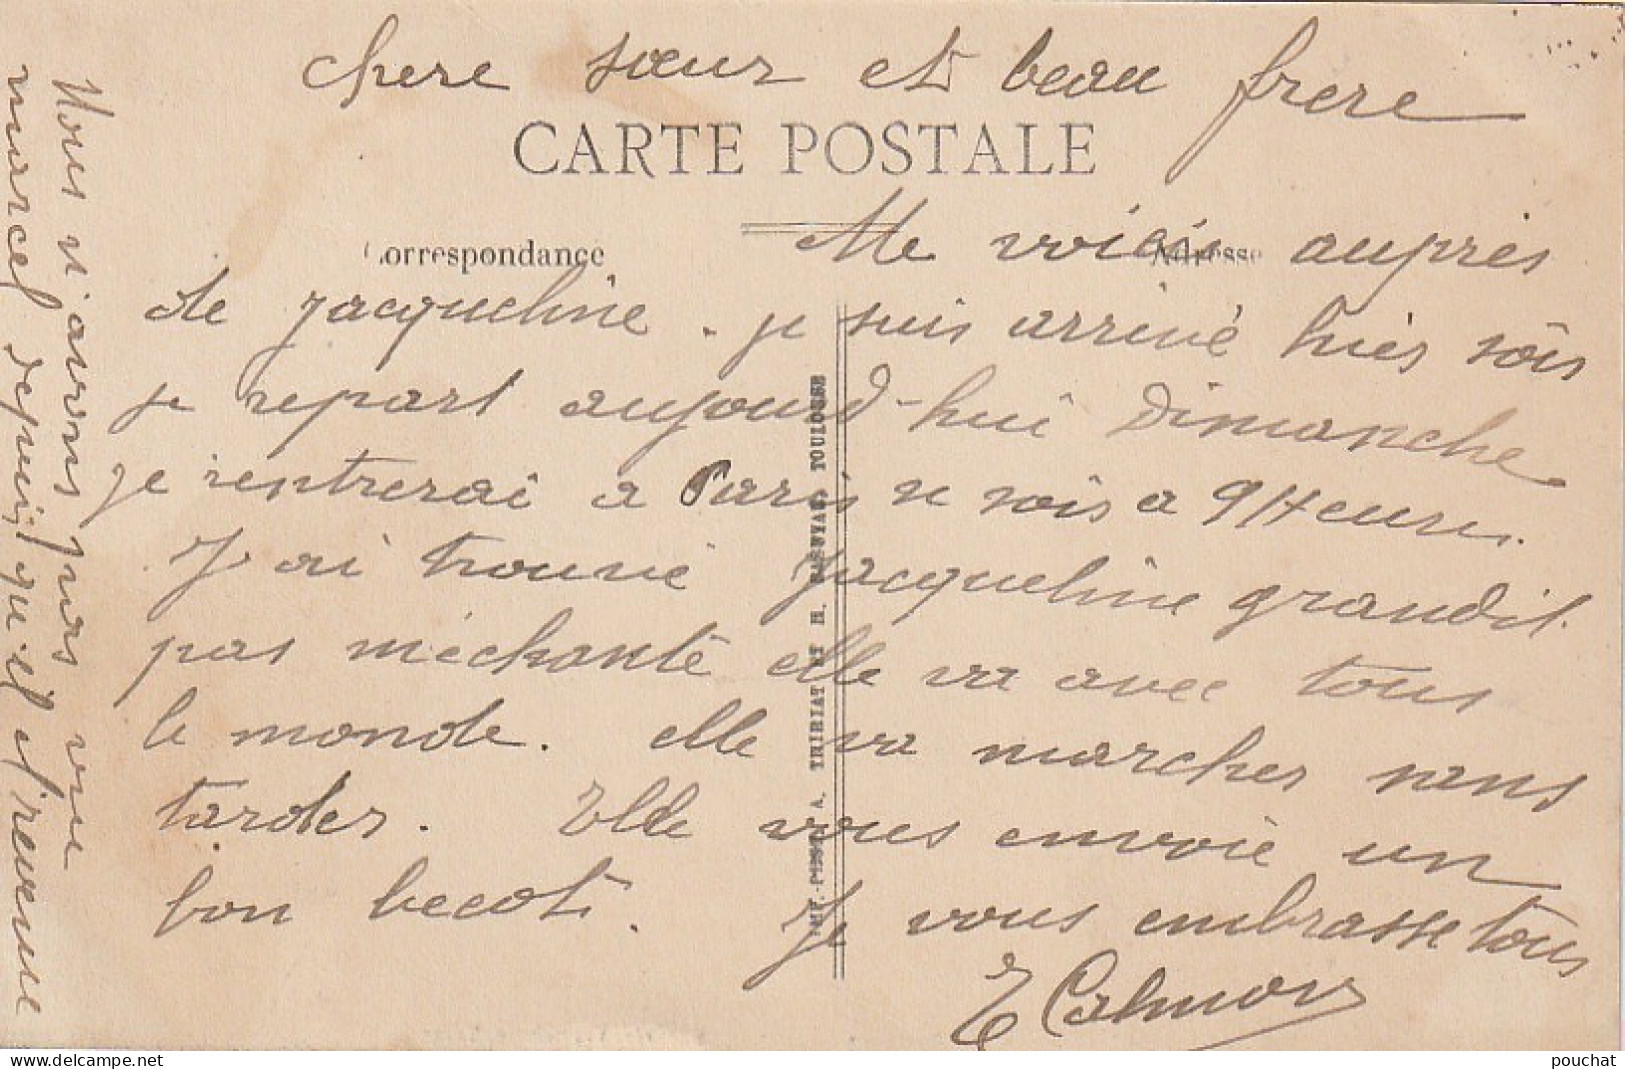 chere sœur et beau frere
CARTE POSTALE
Correspondance
Adresse
Me voici auprès
de Jacqueline. je suis arrivé hier soir
je repart aujourd-hui Dimanche
je rentrerai a Paris se soir a 9 Heures.
J'ai trouvé Jacqueline grandit
pas méchante elle va avec tous
le monde. elle va marcher sans
tarder. Elle vous envoie un
bon becot. Je vous embrasse tous
E Calmon
Nous n'avons pas vue
marcel depuis qu'il
IMP.-PHOT. A. THIRIAT ET H. BASUYAU, TOULOUSE
pouchat
www.delcampe.net